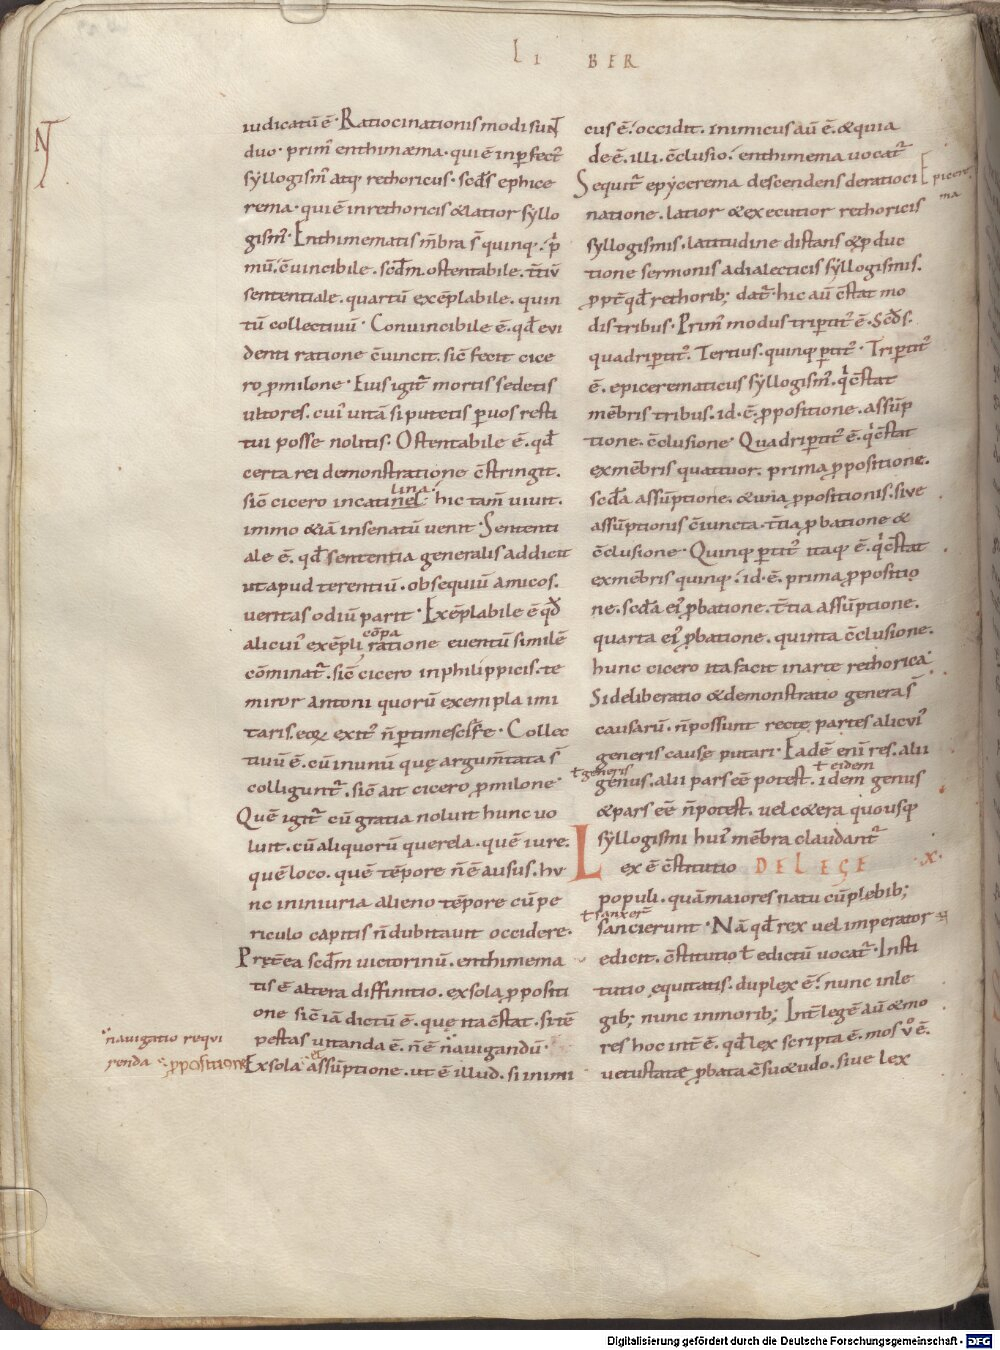 LI BER
iudicatū ē· Ratiocinationis modi sunt
duo· prim᾿ enthimæma· qui ē inperfect᾿
syllogism᾿ atq; rethoricus· scd̄s ephice
rema· qui ē inrethoricis & latior syllo
gism᾿· Enthimematis m̄bra s̄ quinq;· p̄
mū· c̄uincibile· scd̄m· ostentabile· t̄tiū
sententiale· quartū exēplabile· quin
tū collectiuū· Conuincibile ē· qd̄ evi
denti ratione c̄uincit· sic̄ fecit cice
ro p̱milone· Eius igit᾿ mortis sedetis
ultores· cui᾿ uitā si putetis p̱uos resti
tui posse nolitis· Ostentabile ē· qd̄
certa rei demonstratione c̄stringit·
lina·
sic̄ cicero incatinel· hic tam̄ uiuit·
immo & iā insenatū uenit· Sententi
ale ē· qd̄ sententia generalis addicit
ut apud terentiū· obsequiū amicos·
ueritas odiū parit· Exēplabile ē qd̄
cōpa
alicui᾿ exēpli ratione euentū similē
cōminat᾿· sic̄ cicero inphilippicis· te
miror antoni quorū exempla imi
taris· eoꝝ exit᾿ n̄ p̱timescere· Collec
tiuū ē· cū inunū quę argum̄tata s̄
colligunt᾿· sic̄ ait cicero p̱milone·
Quē igit᾿ cū gratia noluit hunc uo
luit· cū aliquorū querela· quē iure·
quē loco· quē tēpore n̄ ē ausus· hu
nc ininiuria alieno tēpore cū pe
riculo capitis n̄ dubitauit occidere·
Pręt̄ea scd̄m uictorinū· enthimema
tis ē altera diffinitio· exsola p̱positi
one sic̄ iā dictū ē· quę ita c̄stat· si tē
pestas uitanda ē· n̄ ē nauigandū·
nauigatio requi
renda p̱positione
et
Exsola assūptione· ut ē illud· si inimi
cus ē· occidit· inimicus aū ē· & quia
de ē· illi· c̄clusio· enthimema uocat᾿
Epicere
ma
Sequit᾿ epycerema descendens deratioci
natione· latior & executior rethoricis
syllogismis· latitudine distans & p̱duc
tione sermonis adialecticis syllogismis·
p̱pt̄ qd̄ rethorib; dat᾿· hic aū c̄stat mo
dis tribus· Prim᾿ modus tripertit᾿ ē· Scd̄s·
quadripertit᾿· Tertius· quinq; p̱tit᾿· Tripertit᾿
ē· epicerematicus syllogism᾿· q̇ c̄stat
mēbris tribus· id· ē· p̱positione· assūp
tione· c̄clusione· Quadripertit᾿ ē· q̇ c̄stat
exmēbris quattuor· prima p̱positione·
scd̄a assūptione· & una p̱positionis· sive
assūptionis c̄iuncta· t̄tia p̱batione &
c̄clusione· Quinq; p̱tit᾿ itaq; ē· q̇ c̄stat
exmēbris quinq;· id· ē· prima p̱positio
ne· scd̄a ei᾿ p̱batione· t̄tia assūptione·
quarta ei᾿ p̱batione· quinta c̄clusione·
hunc cicero ita facit inarte rethorica·
Si deliberatio & demonstratio genera s̄
causarū· n̄ possunt recte partes alicui᾿
generis cause putari· Eadē eni᾿ res· alii
ł generis ł eidem
genus· alii pars eē potest· idem genus
& pars eē n̄ potest· vel c&era quousq;
syllogismi hui᾿ mēbra claudant᾿
Lex ē c̄stitutio DE LEGE ·X·
populi· quā maiores natu cū plebib;
ł sanxer̄
sancierunt· Nā qd̄ rex vel imperator
edicit· c̄stitutio ł edictū vocat᾿· Insti
tutio ęquitatis· duplex ē· nunc inle
gib; nunc inmorib; Int̄ legē aū & mo
res hoc int̄ ē· qd̄ lex scripta ē· mos v̊ ē·
uetustatæ p̱bata c̄su&udo· siue lex
Digitalisierung gefördert durch die Deutsche Forschungsgemeinschaft - DFG